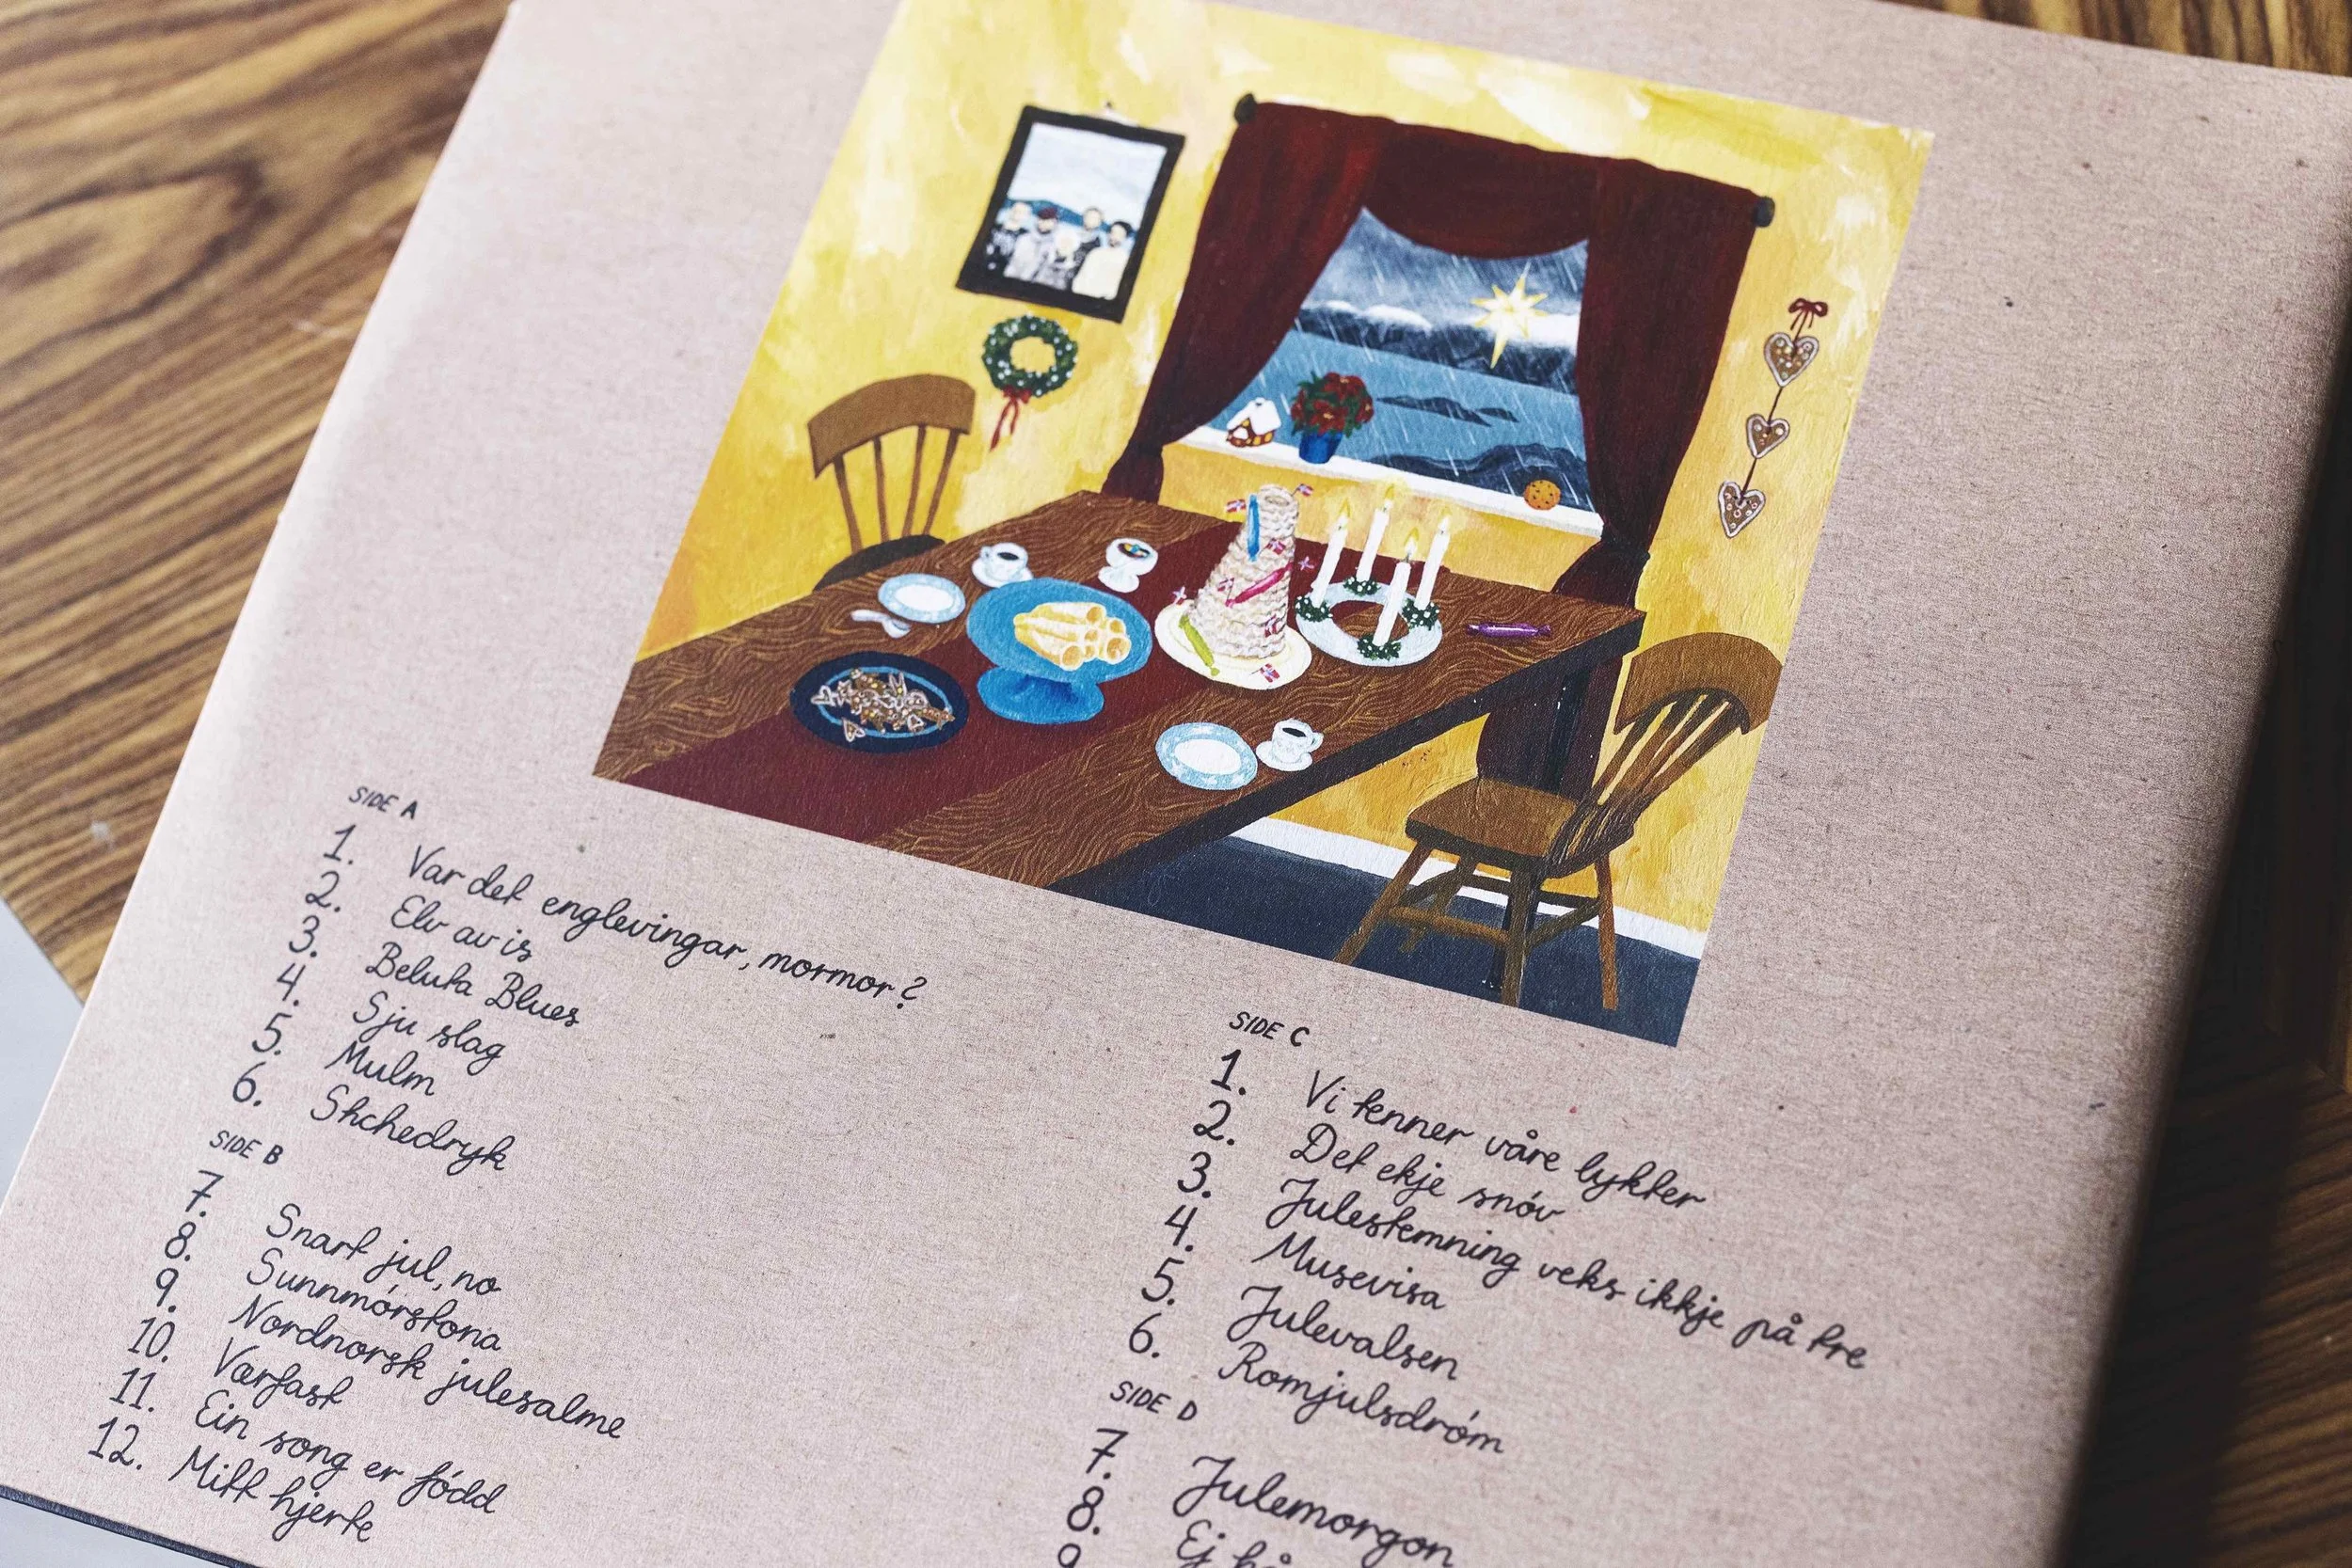 SIDE A
1. Var det englevingar, mormor?
2. Elv av is
3. Beluta Blues
4. Sju slag
5. Mulm
6. Shchedryk
SIDE B
7. Snart jul, no
8. Sunnmørstona
9. Nordnorsk julesalme
10. Værfast
11. Ein song er fødd
12. Mitt hjerte
SIDE C
1. Vi tenner våre lykter
2. Det ekje snøv
3. Julestemning veks ikkje på tre
4. Musevisa
5. Julevalsen
6. Romjulsdrøm
SIDE D
7. Julemorgon
8. Ej
9.